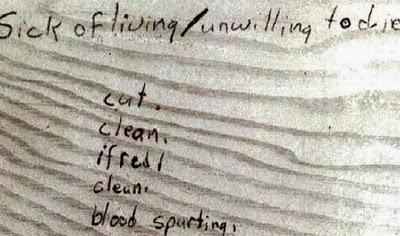 Sick of living/unwilling to die
cut.
clean.
if red/
clean.
blood spurting,